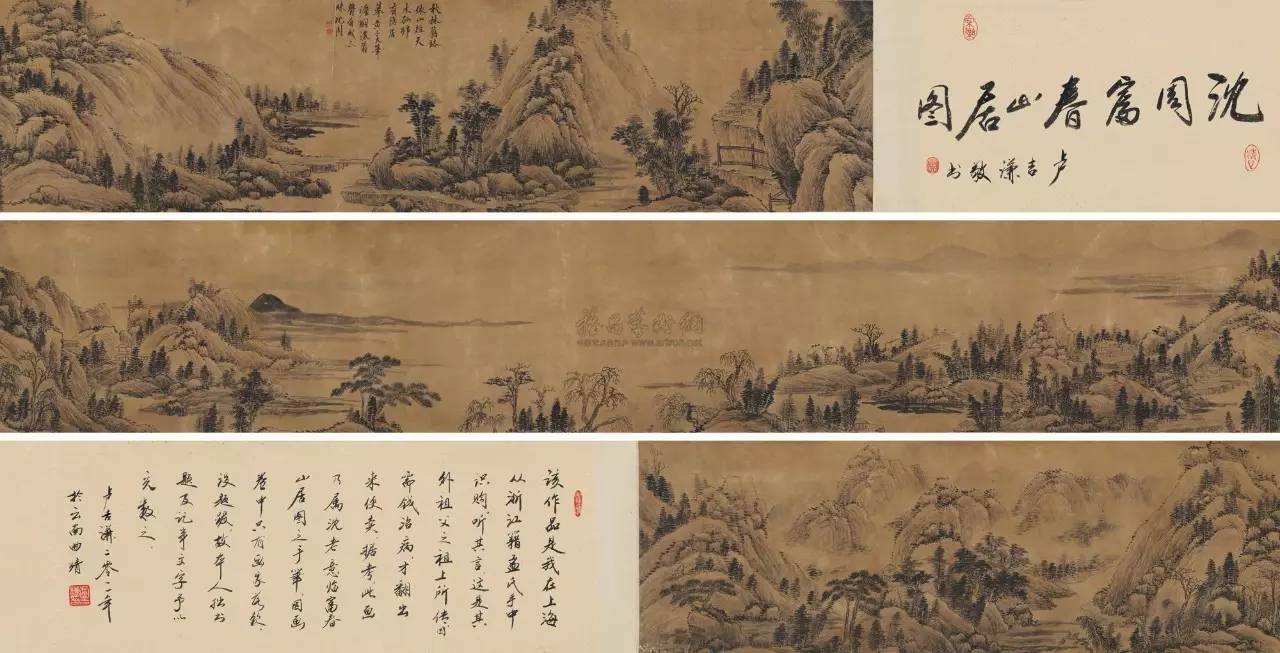 沈周富春山居图
卢吉谦敬书
雅昌艺术网
www.artron.net
该作品是我在上海
从浙江籍孟氏手中
识购听其言这是其
外祖父之祖上所传因
需钱治病才翻出
来便卖.据考此画
乃属沈老意临富春
山居图之手笔因画
卷中只有画家落款,
没题跋故本人拙书
题及记事文字予以
充数之.
卢吉谦二零一一年
於云南曲靖